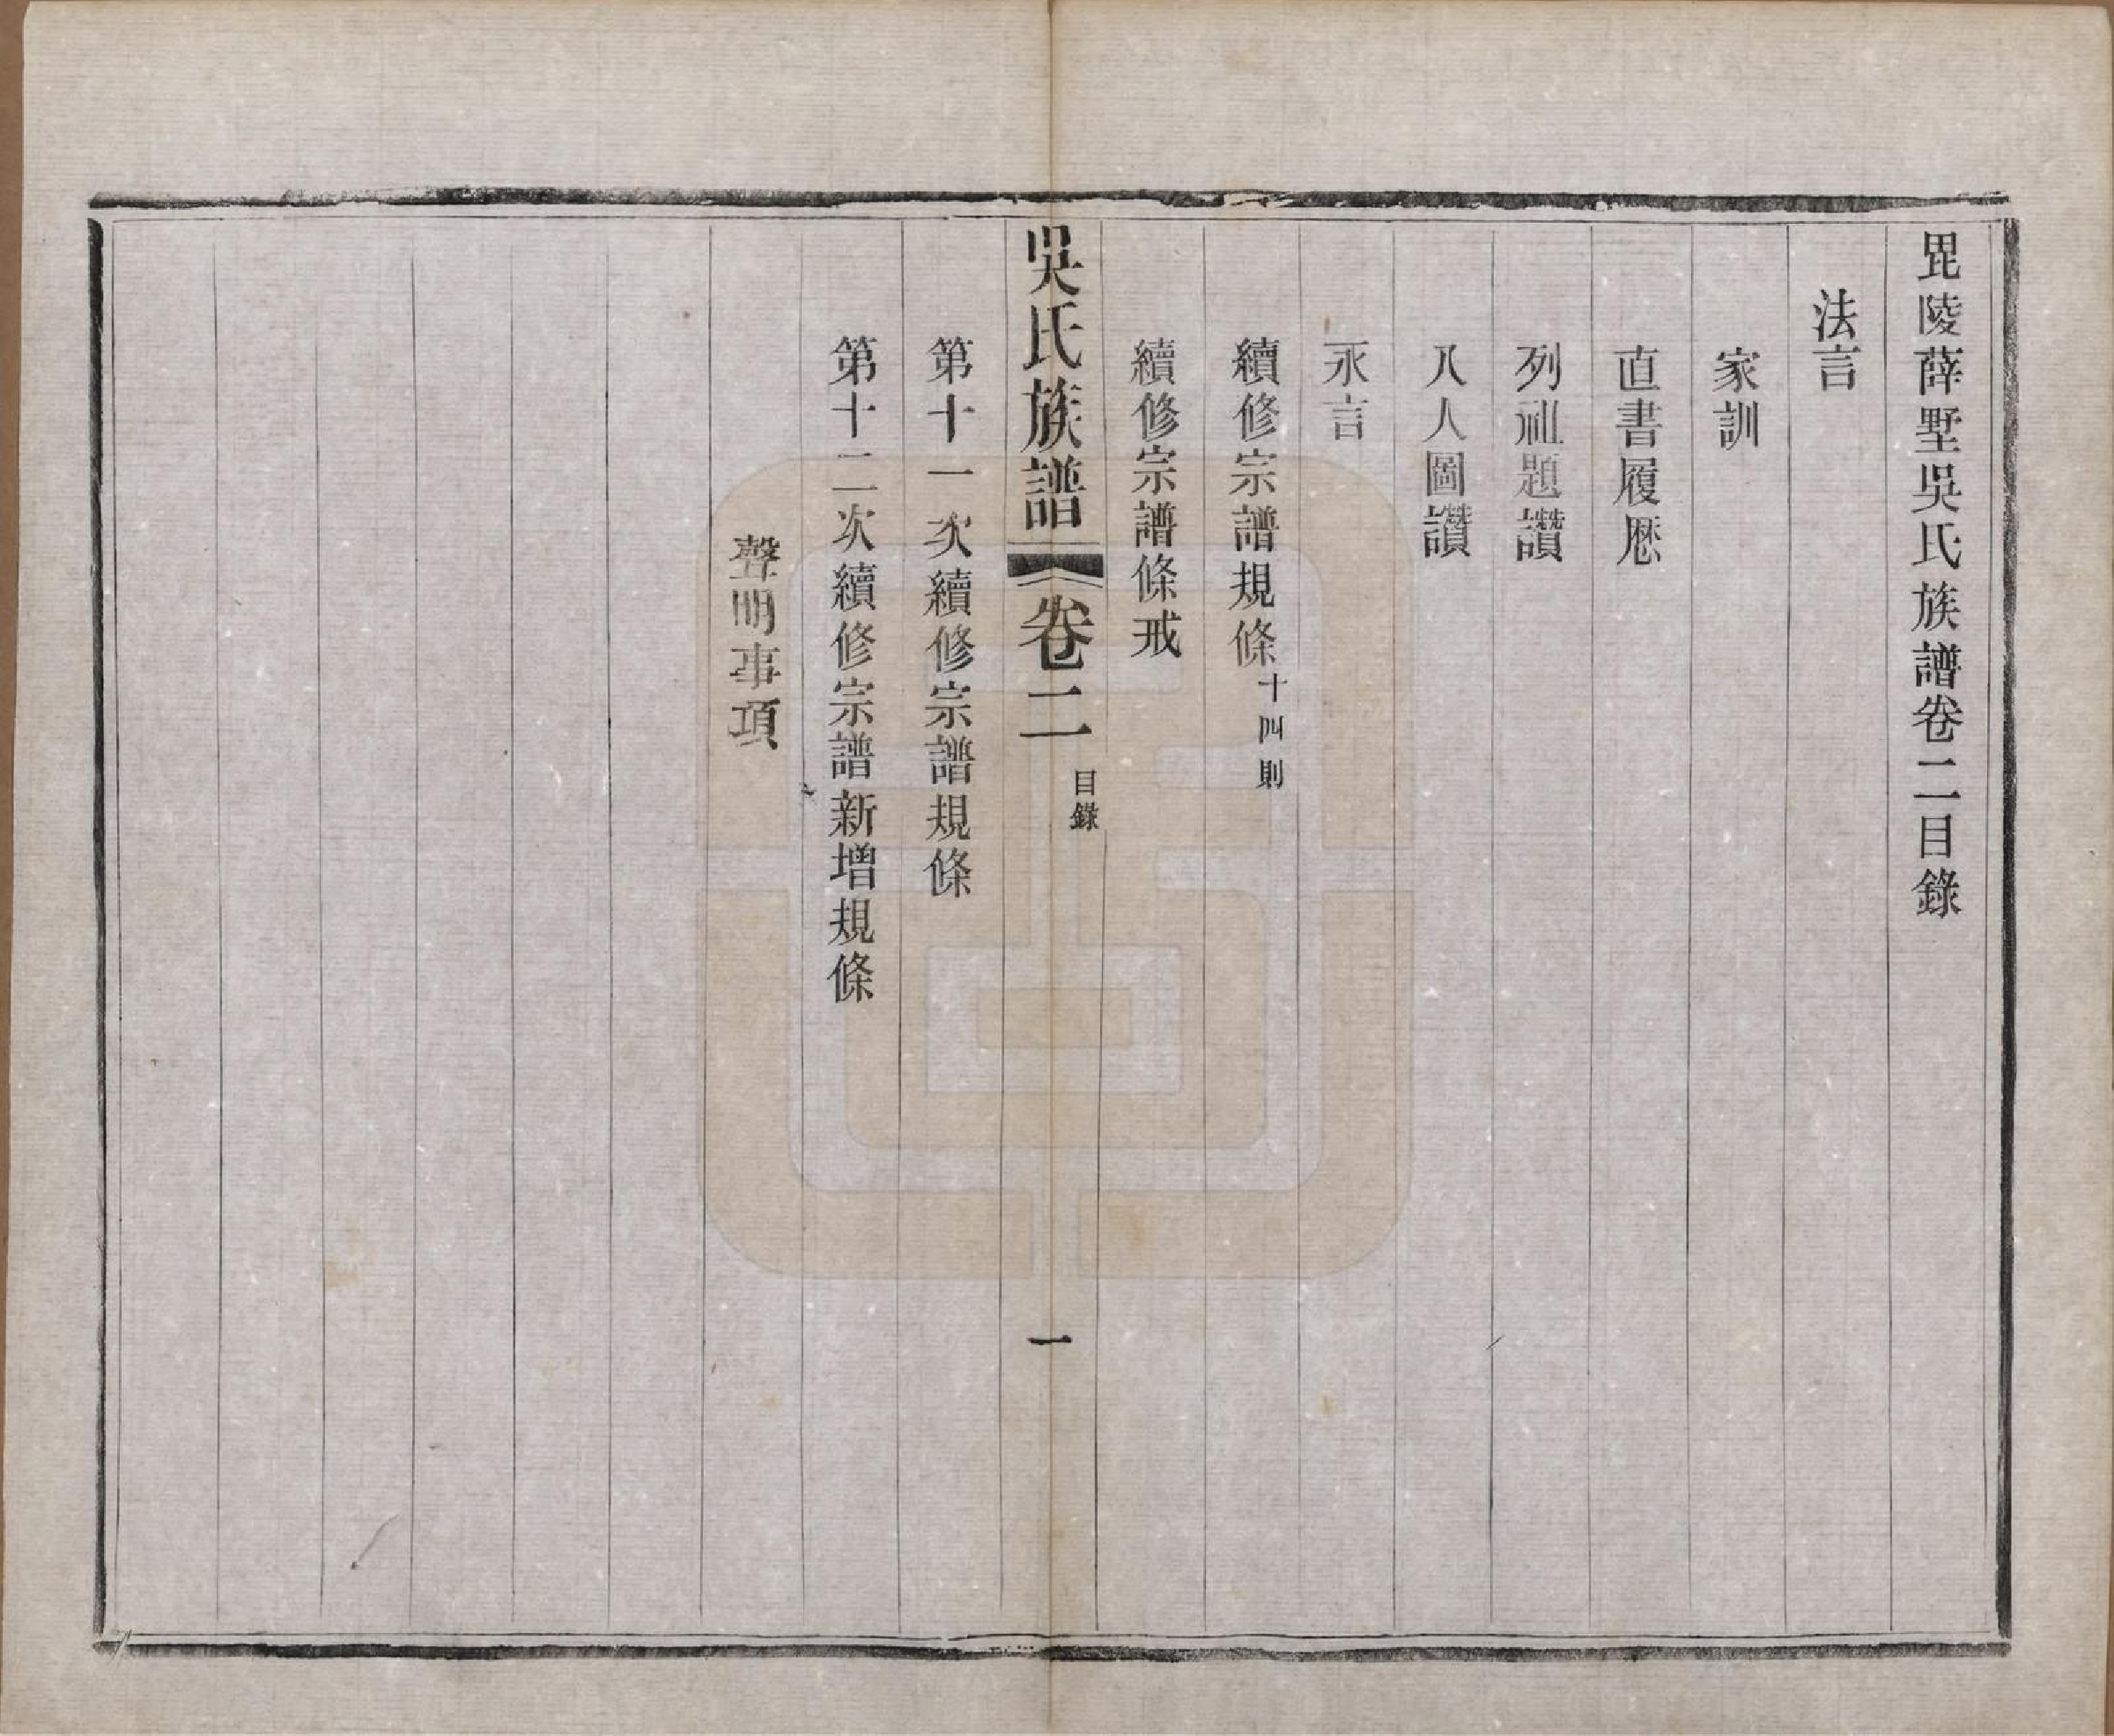 毘陵薛墅吳氏族譜卷二目錄
法言
家訓
直書履歷
列祖題讚
八人圖讚
永言
續修宗譜規條十四則
續修宗譜條戒
吳氏族譜 卷二 目錄 一
第十一次續修宗譜規條
第十二次續修宗譜新增規條
聲明事項